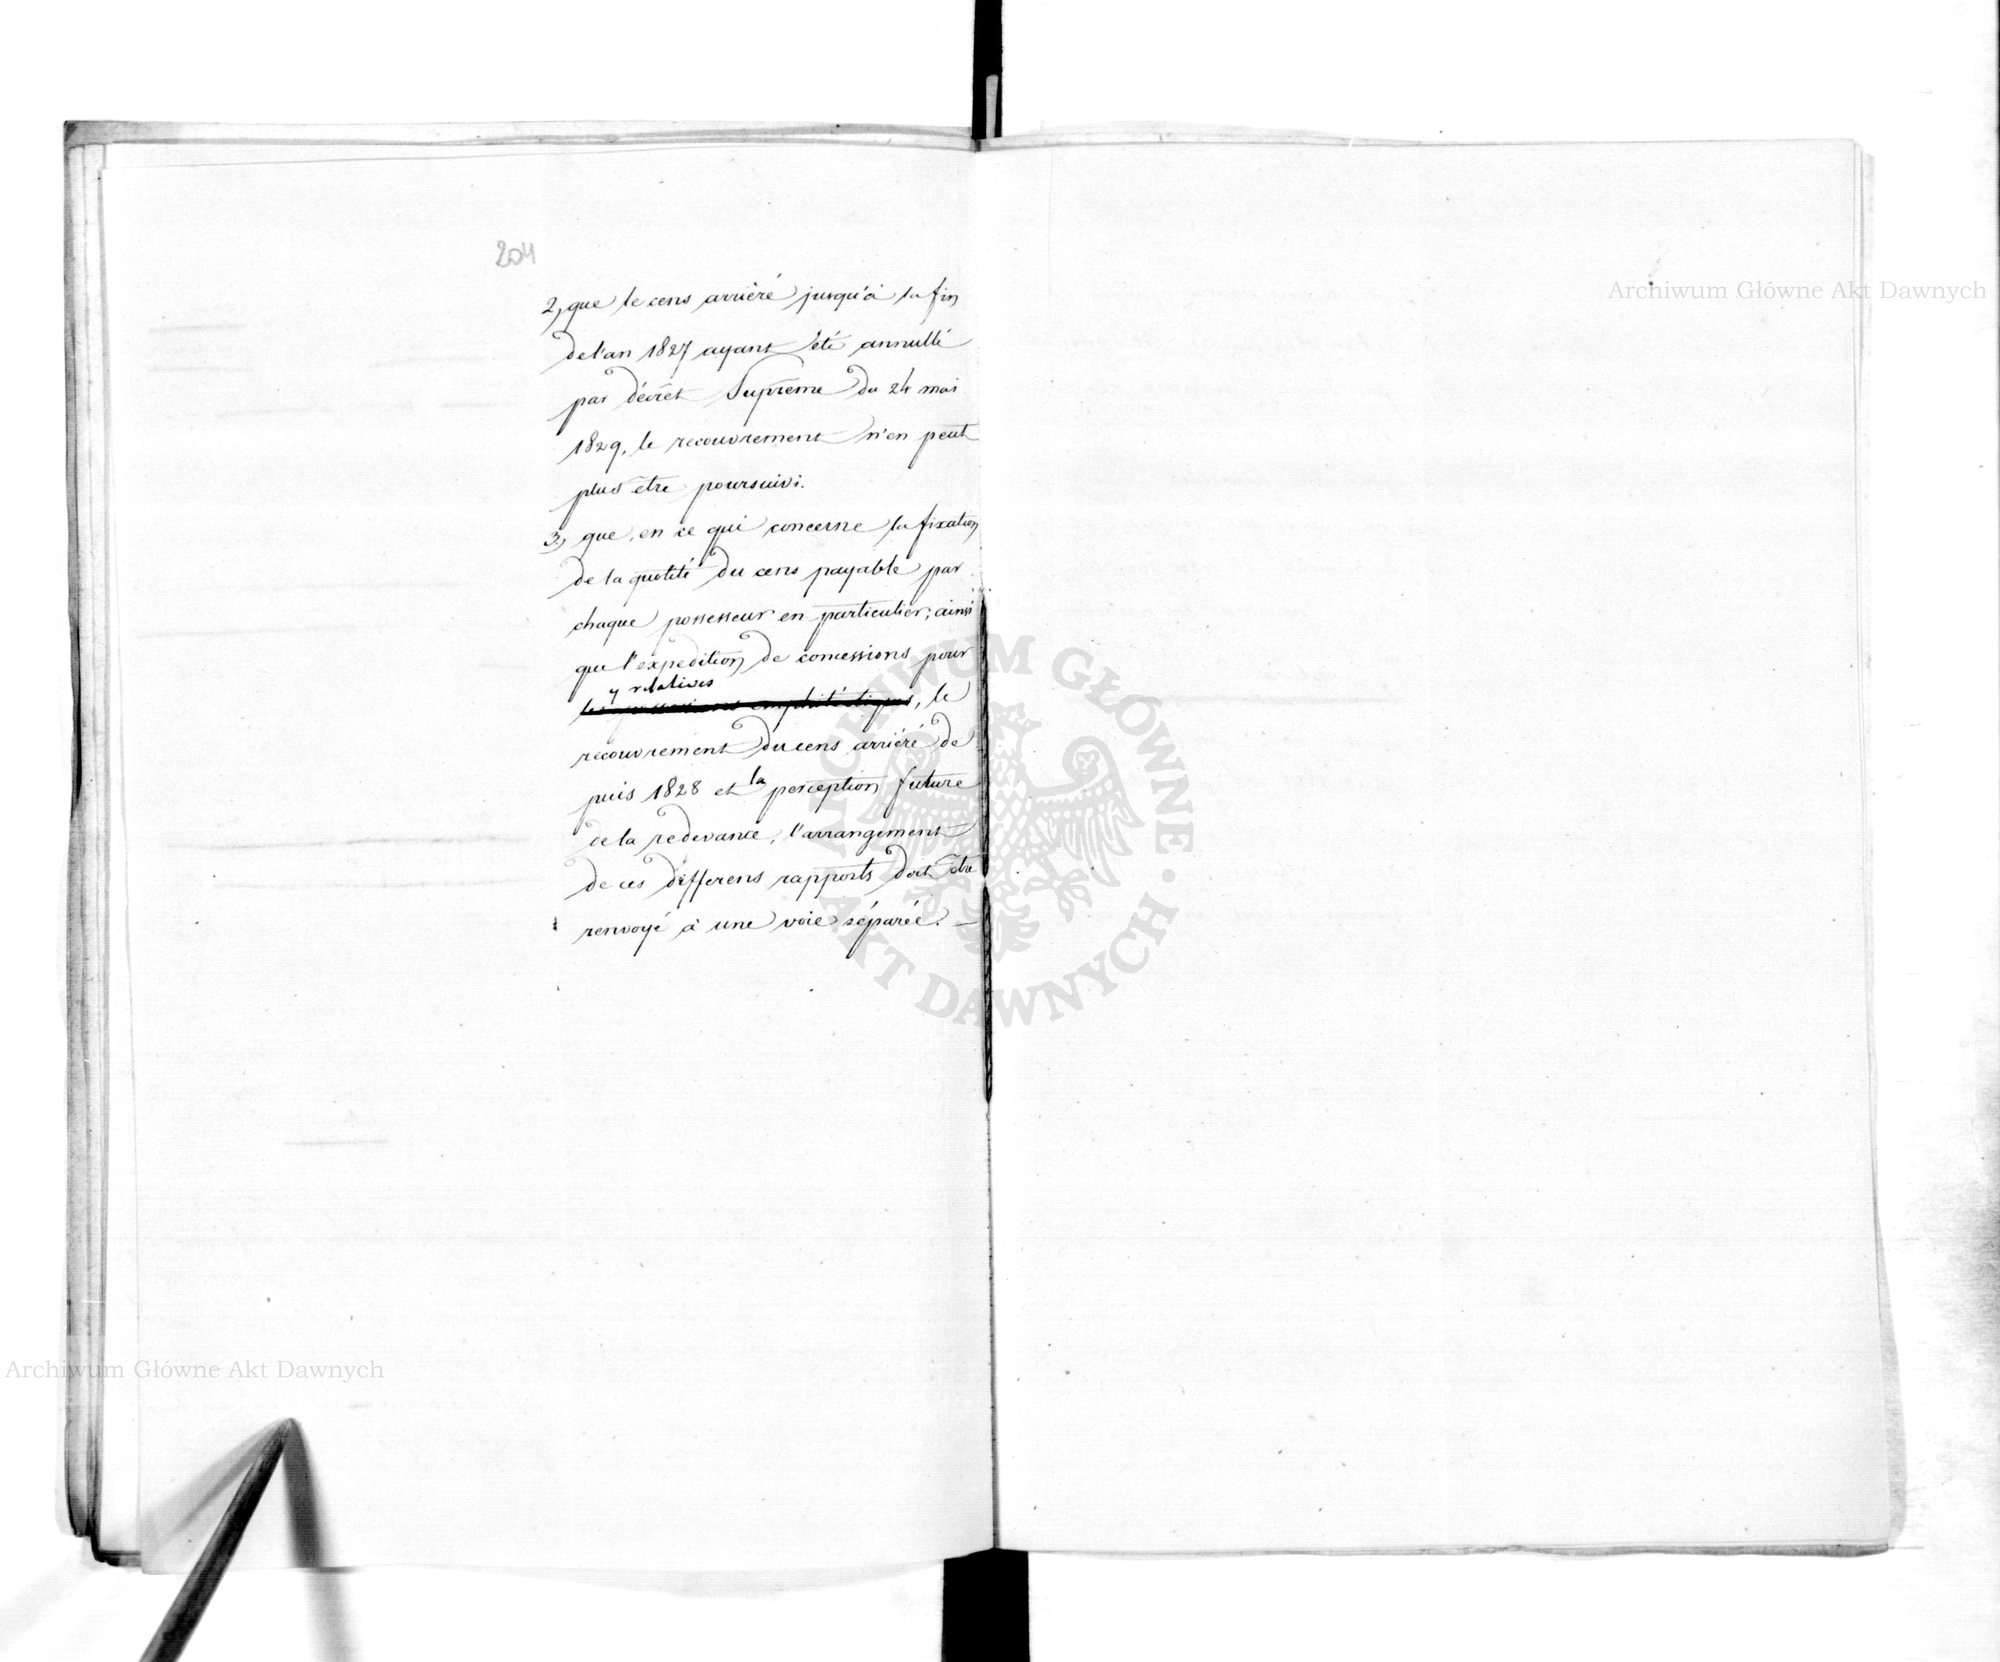 204
2, que le cens arriéré jusqu'à la fin
de l'an 1827 ayant été annullé
par décret Suprême du 24 mai
1829, le recouvrement n'en peut
plus être poursuivi.
3, que, en ce qui concerne la fixation
de la quotité du cens payable par
chaque possesseur en particulier, ainsi
que l'expédition de concessions pour
y relatives
les possessions emphitéotiques, le
recouvrement du cens arriéré de
puis 1828 et la perception future
de la redevance, l'arrangement
de ces differens rapports doit être
renvoyé à une voie séparée. —
Archiwum Główne Akt Dawnych
ARCHIWUM GŁÓWNE · AKT DAWNYCH ·
Archiwum Główne Akt Dawnych